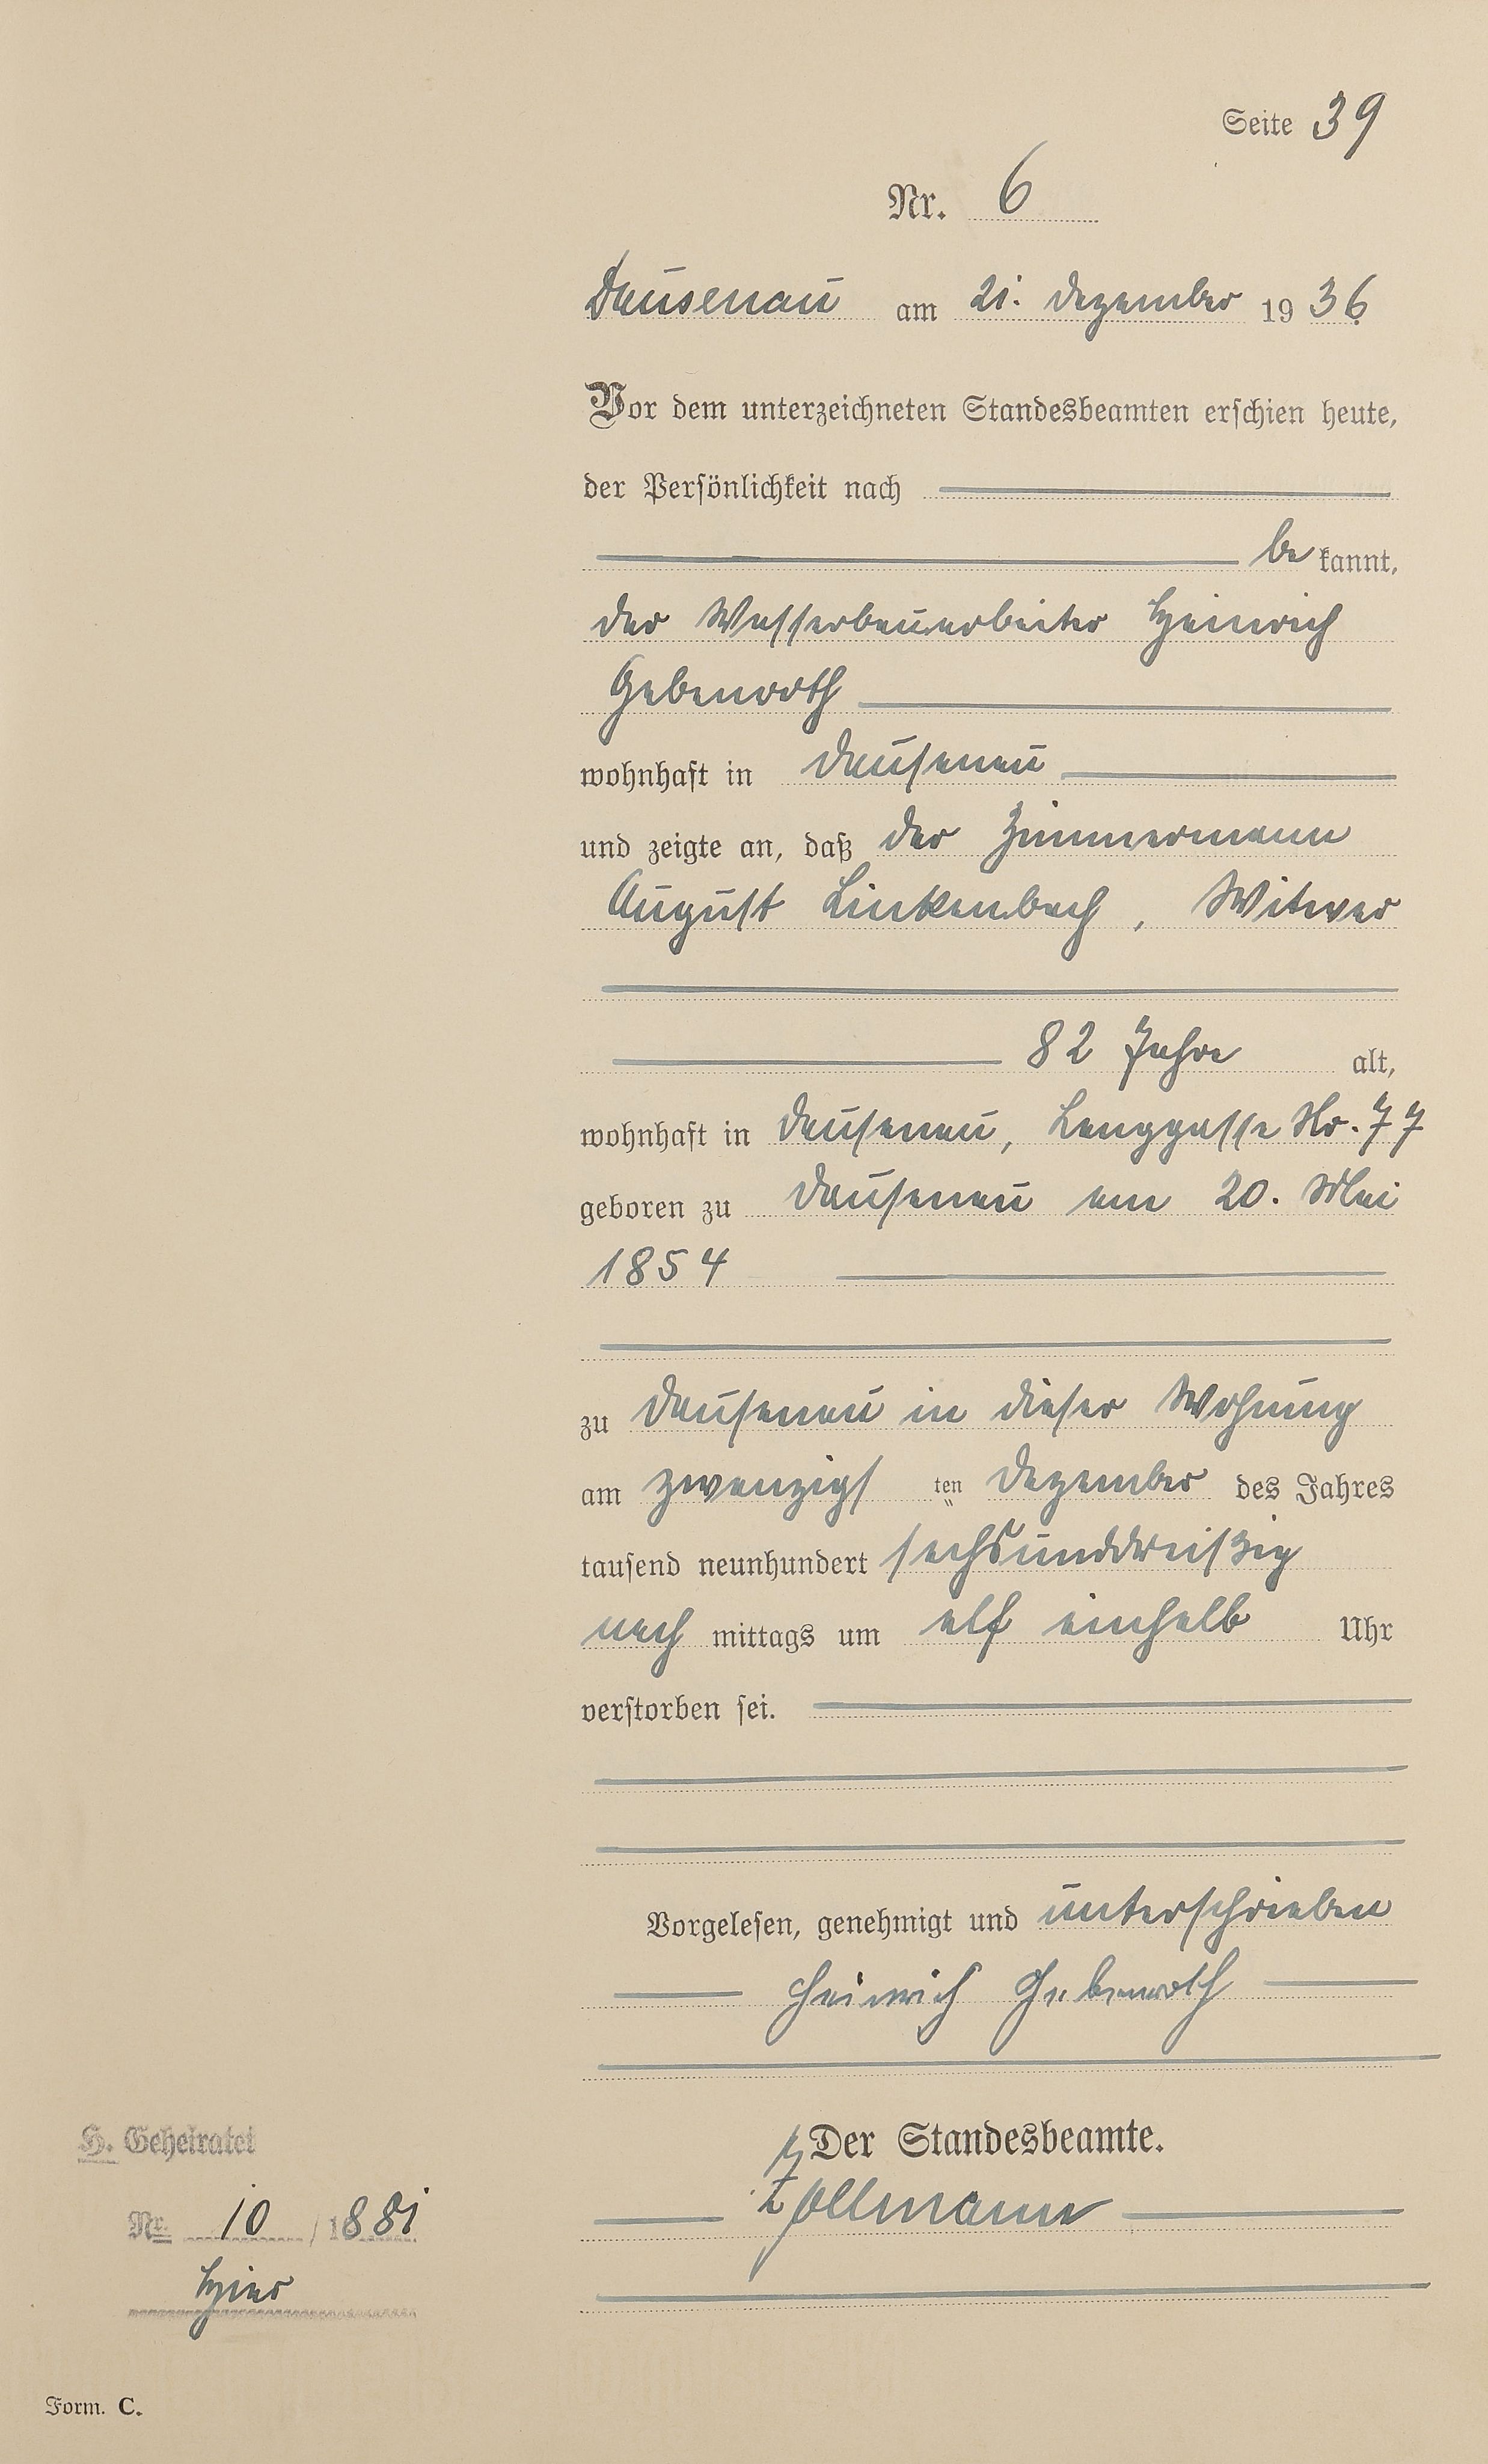 Seite 39
Nr. 6
Dausenau am 21. Dezember 1936.
Vor dem unterzeichneten Standesbeamten erschien heute,
der Persönlichkeit nach
bekannt,
der Wasserbauarbeiter Heinrich
Gebenroth
wohnhaft in Dausenau
und zeigte an, daß der Zimmermann
August Linkenbach, Witwer
82 Jahre alt,
wohnhaft in Dausenau, Langgasse Nr. 77
geboren zu Dausenau am 20. Mai
1854
zu Dausenau in dieser Wohnung
am zwanzigsten Dezember des Jahres
tausend neunhundert sechsunddreißig
nachmittags um elf einhalb Uhr
verstorben sei.
Vorgelesen, genehmigt und unterschrieben
Heinrich Gebenroth
Der Standesbeamte.
Zollmann
H. Geheiratet
Nr. 10 / 1881
hier
Form. C.